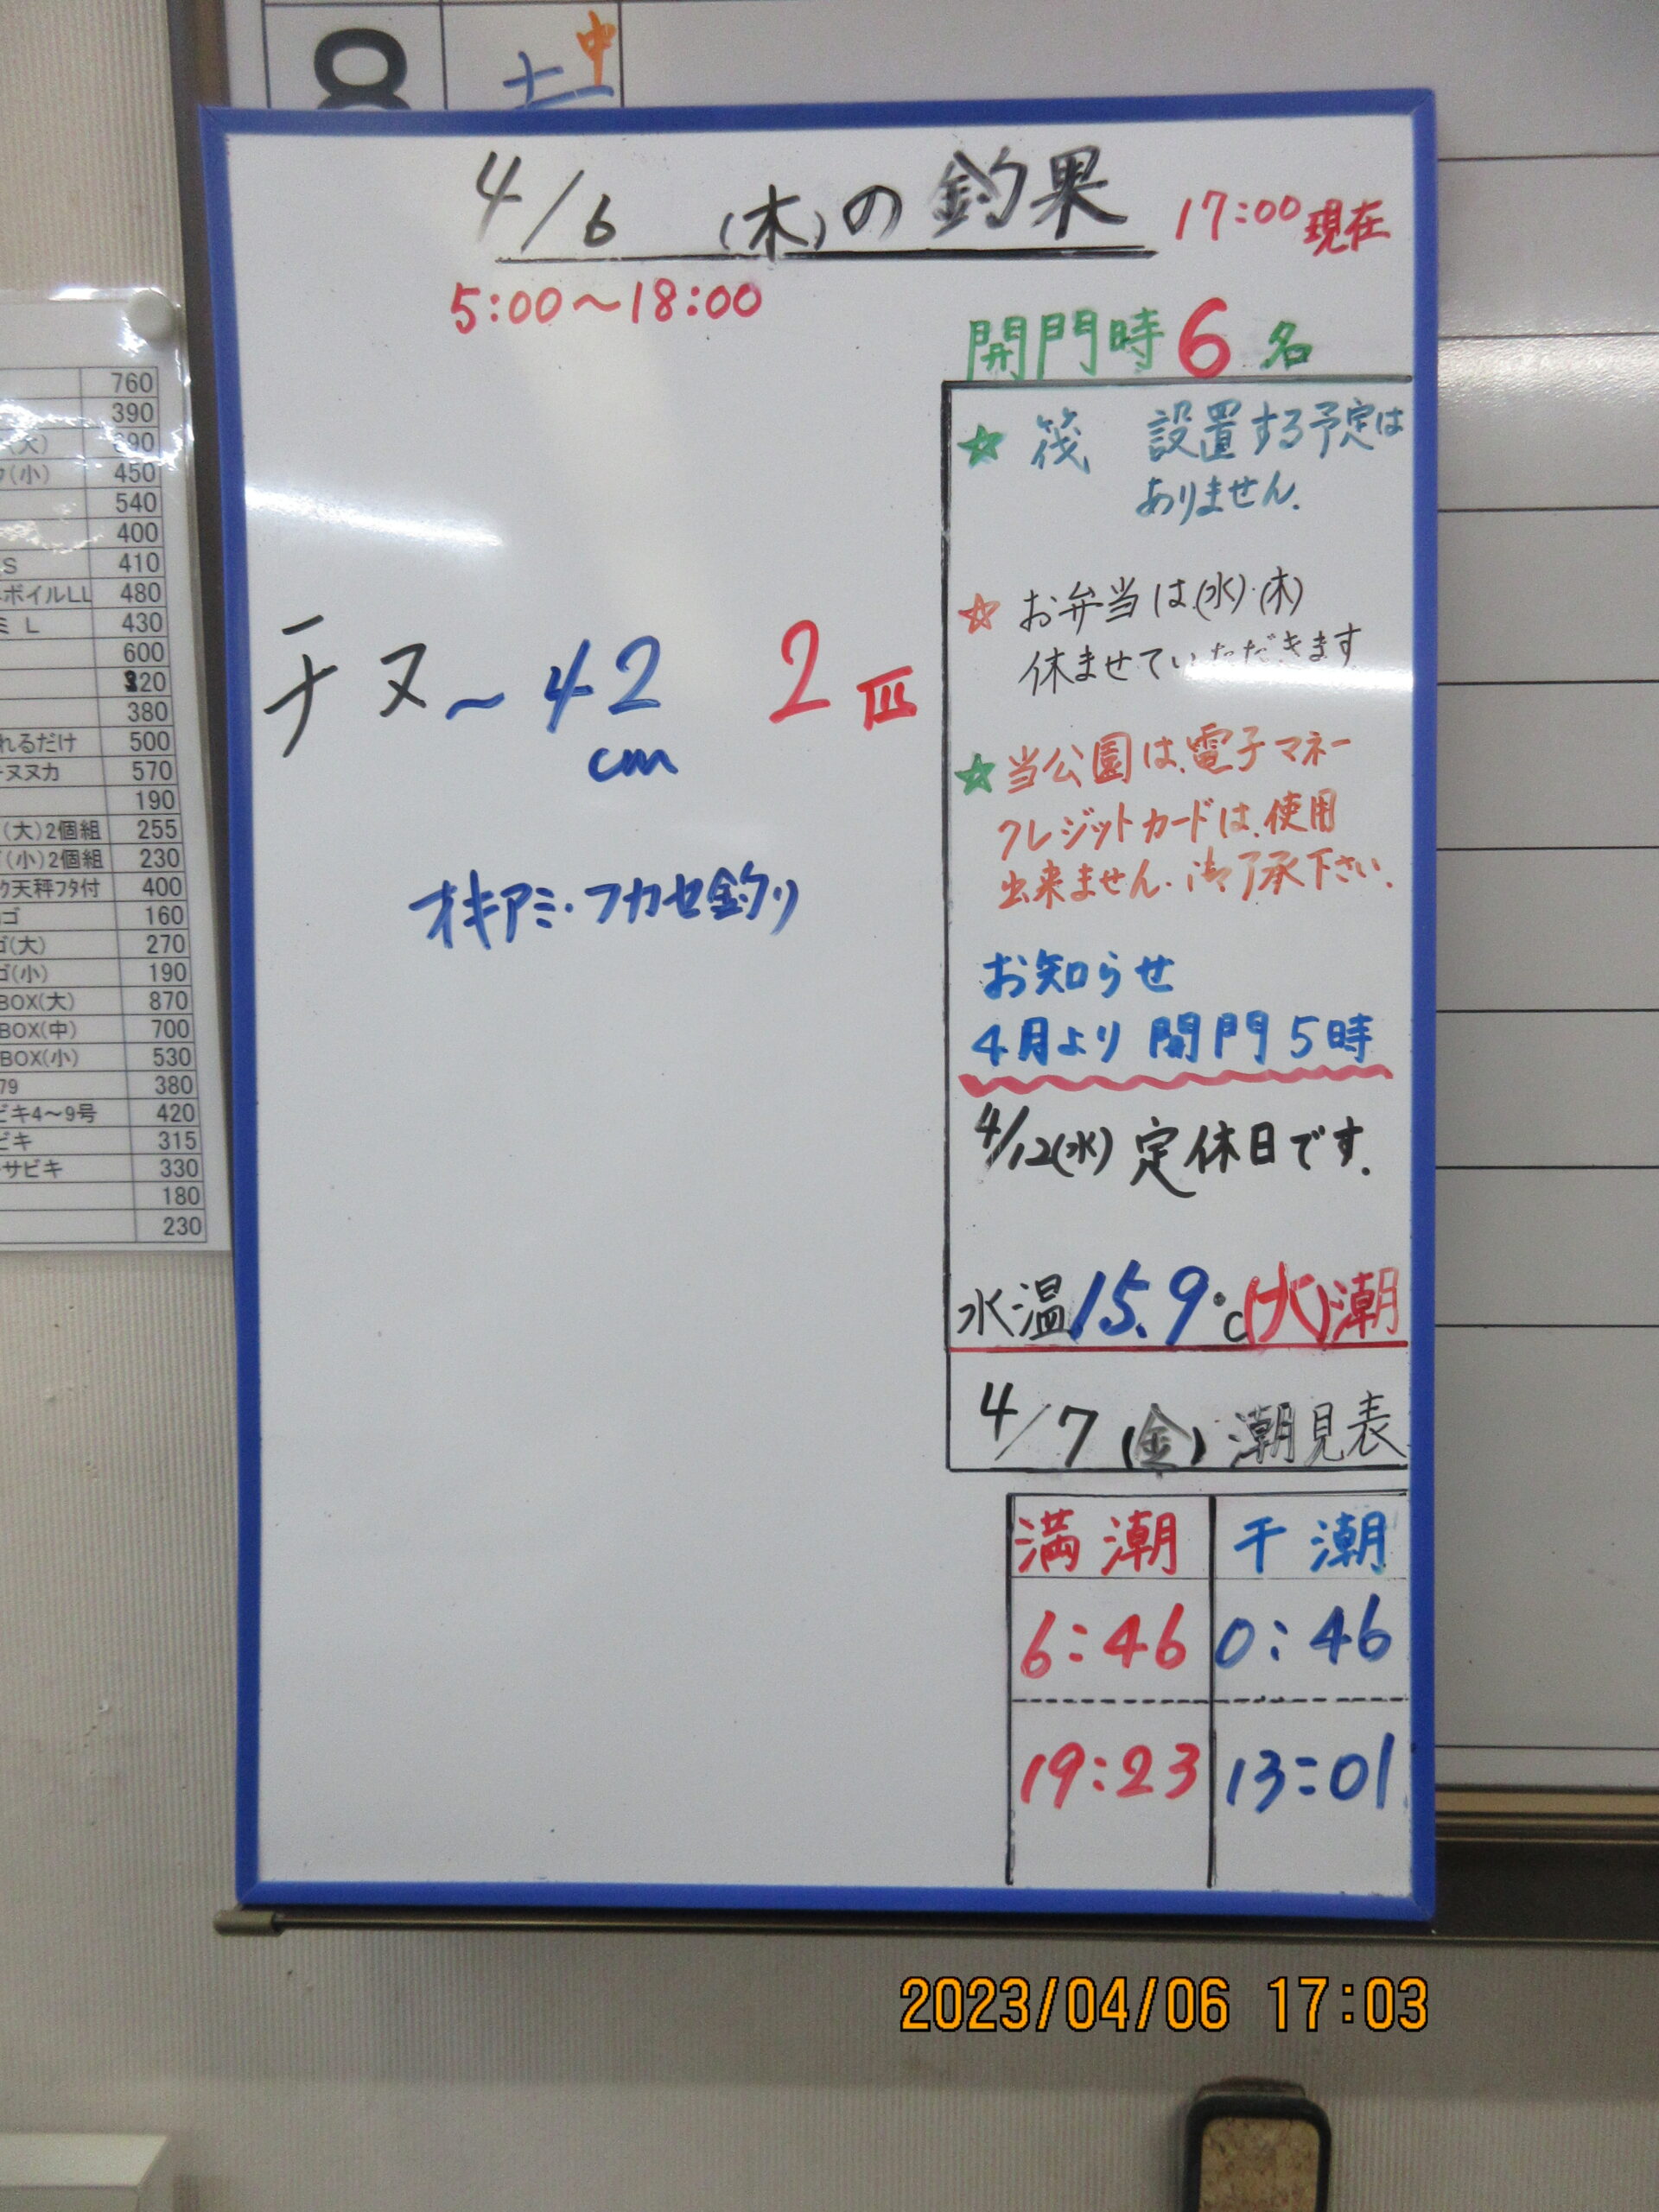 8
土
中
4/6 (木)の釣果
17:00現在
5:00〜18:00
開門時6名
☆ 筏 設置する予定は
ありません.
☆ お弁当は(水)・(木)
休ませていただきます
☆当公園は、電子マネー
クレジットカードは、使用
出来ません. 御了承下さい.
お知らせ
4月より 開門5時
4/12(水) 定休日です.
水温15.9℃(大)潮
4/7(金) 潮見表
満潮 干潮
6:46 0:46
19:23 13:01
チヌ〜42cm 2匹
オキアミ・フカセ釣り
760
390
(大) 390
(小) 450
540
400
S 410
ボイルLL 480
ミ L 430
600
320
380
れるだけ 500
ヌヌカ 570
190
(大)2個組 255
(小)2個組 230
天秤フタ付 400
ゴ 160
ゴ(大) 270
ゴ(小) 190
BOX(大) 870
BOX(中) 700
BOX(小) 530
79 380
ビキ4〜9号 420
ビキ 315
サビキ 330
180
230
2023/04/06 17:03